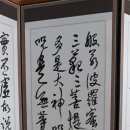 般若波羅蜜
三藐三菩提
多是大神呪
呪是無
實不虛故說